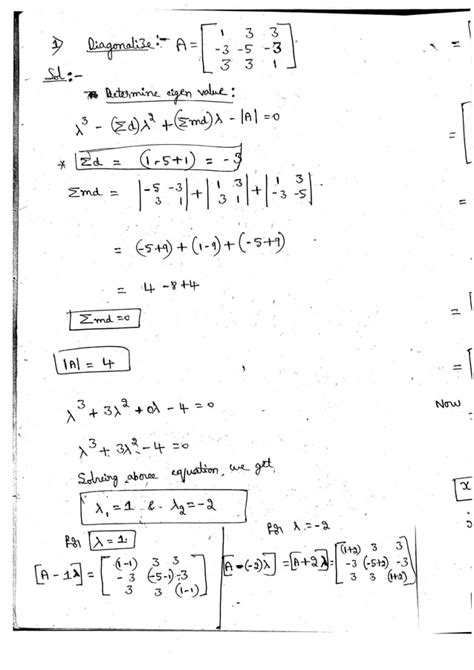 1) Diagonalize:- A = [ 1 3 3
-3 -5 -3
3 3 1 ]
Sol:-
Determine eigen value:
λ³ - (Σd)λ² + (Σmd)λ - |A| = 0
* Σd = (1-5+1) = -3
Σmd = |-5 -3
3 1| + |1 3
3 1| + |1 3
-3 -5|
= (-5+9) + (1-9) + (-5+9)
= 4 - 8 + 4
Σmd = 0
|A| = 4
λ³ + 3λ² + 0λ - 4 = 0
λ³ + 3λ² - 4 = 0
Solveing above equation, we get
λ₁ = 1 & λ₂ = -2
For λ = 1:
[A - 1λ] = [ (1-1) 3 3
-3 (-5-1) -3
3 3 (1-1) ]
For λ = -2
[A - (-2)λ] = [A + 2λ] = [ (1+2) 3 3
-3 (-5+2) -3
3 3 (1+2) ]
= [
= [
=
=
= [
Now
x